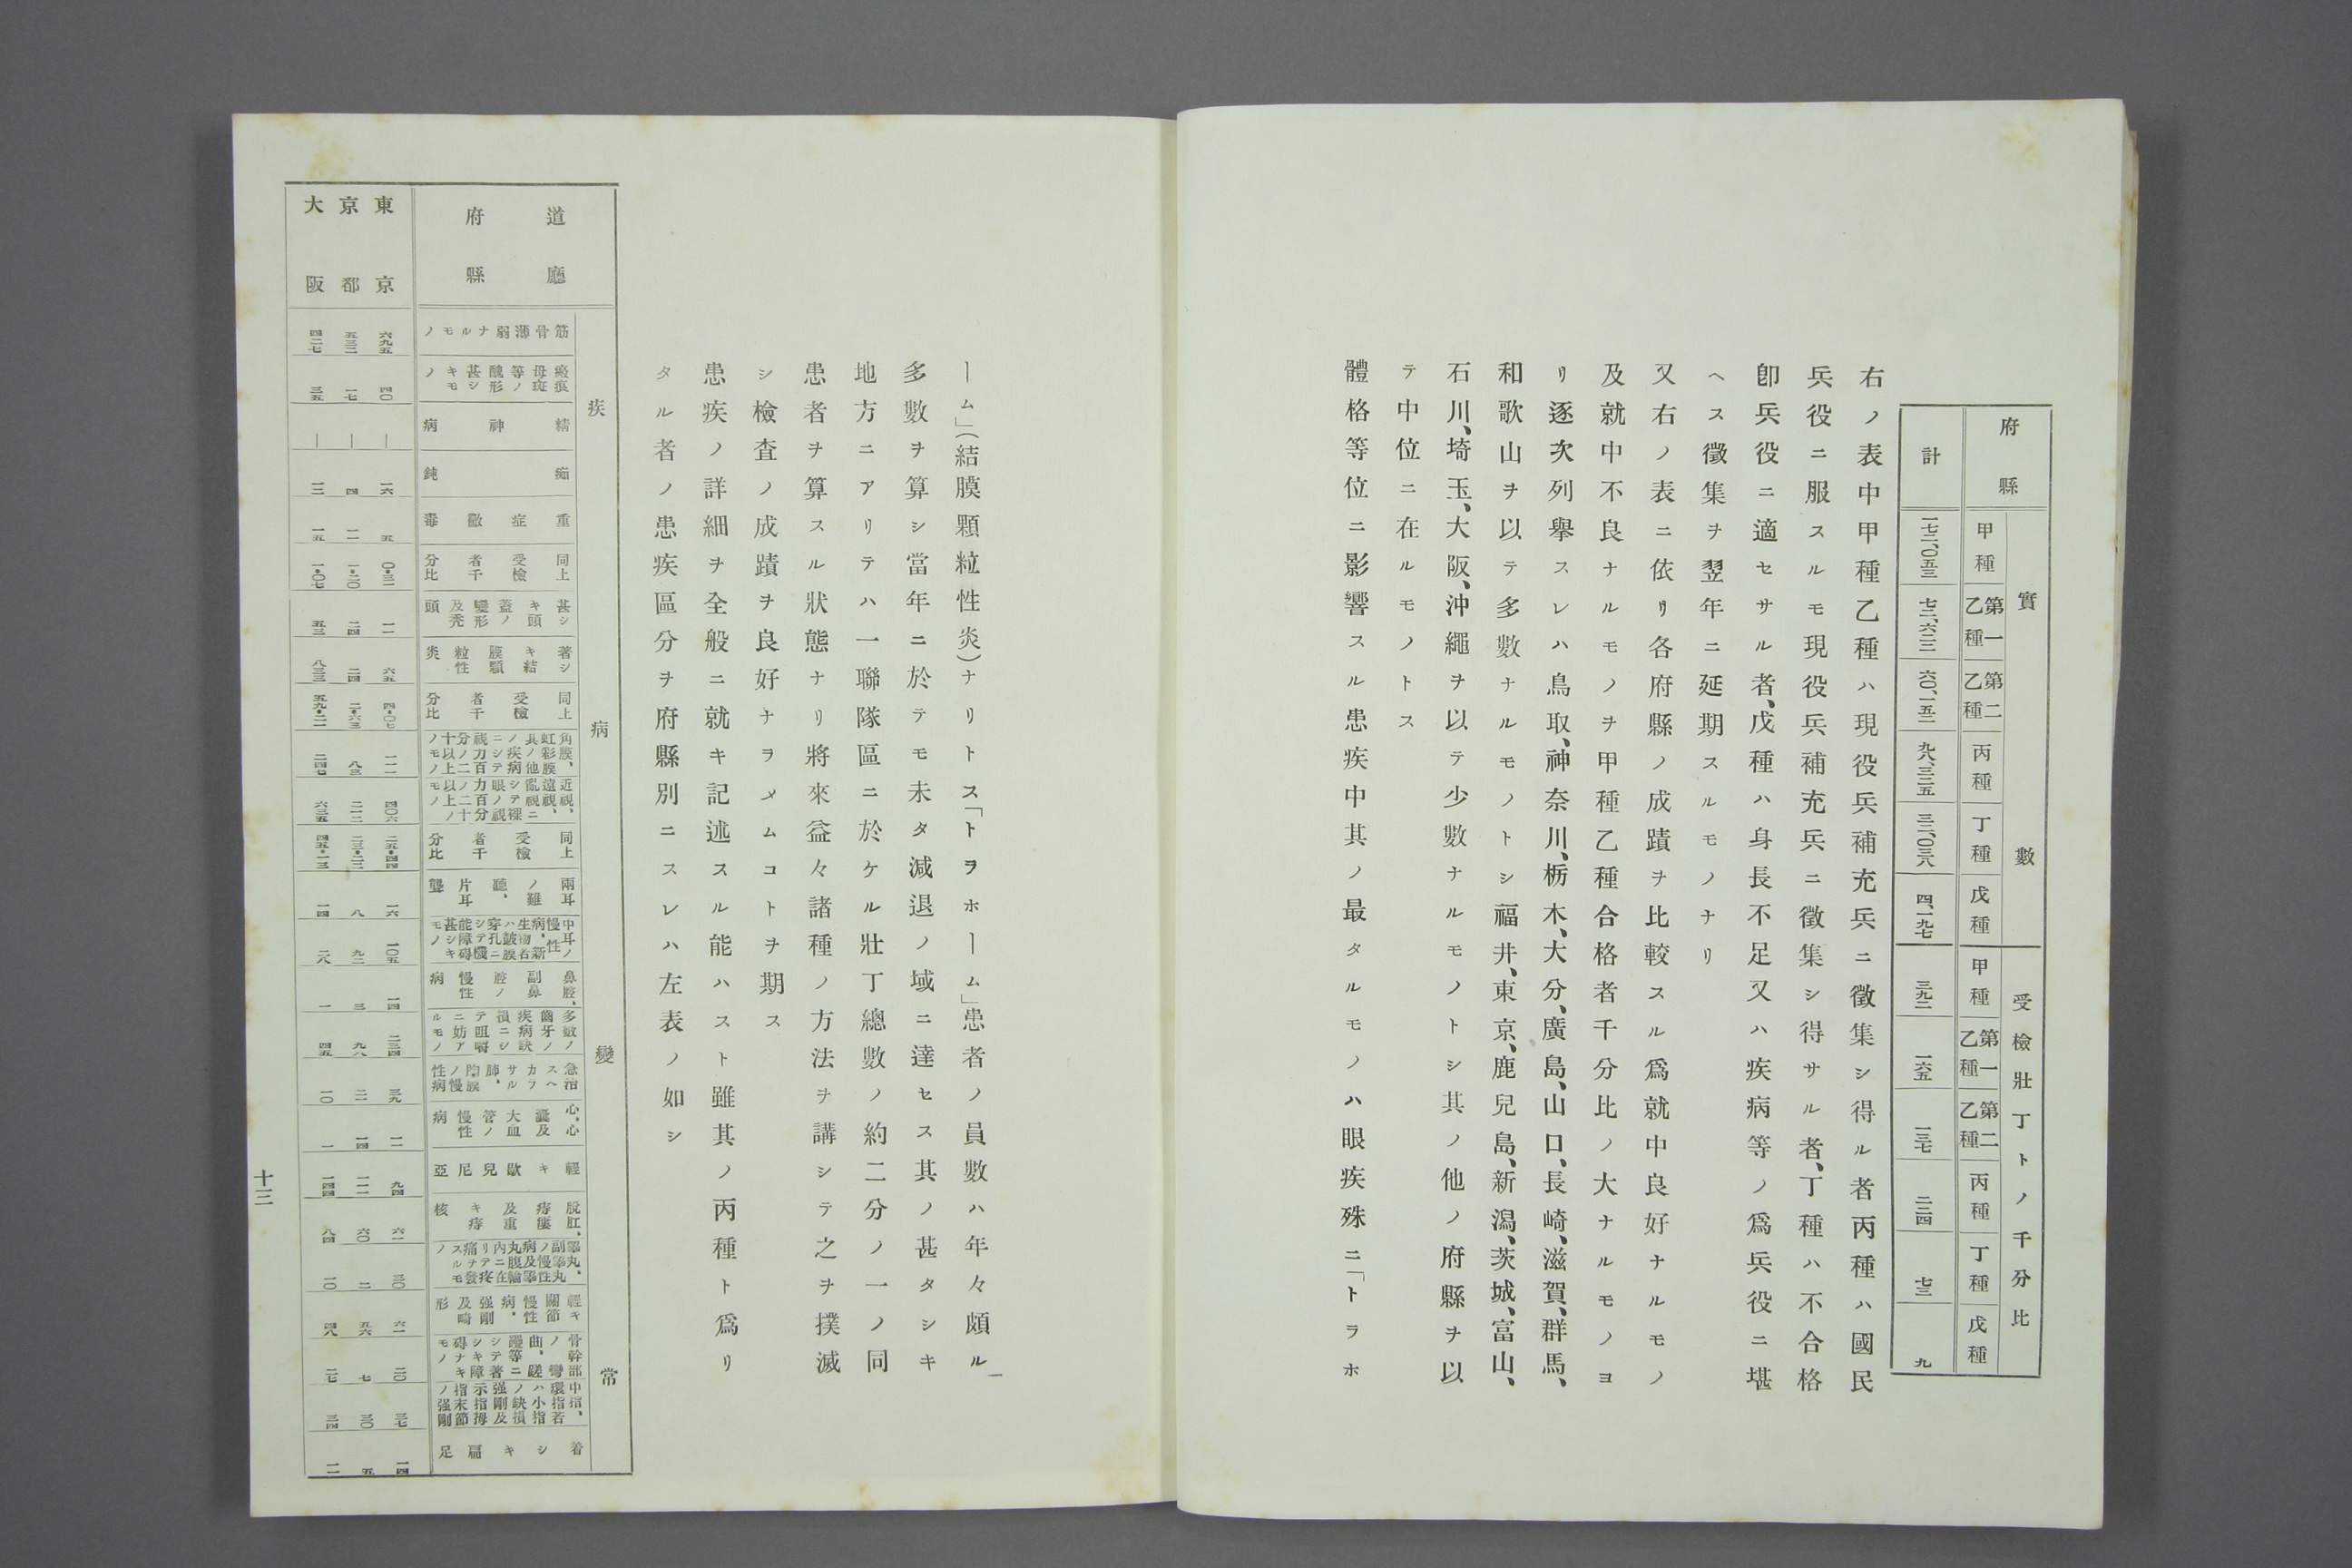 府縣
實數
受檢壯丁トノ千分比
甲種
第一乙種
第二乙種
丙種
丁種
戊種
甲種
第一乙種
第二乙種
丙種
丁種
戊種
計
一七二、〇五三
七二、六二二
六〇、一五二
九八、三二五
三二、〇三八
四、一九七
三九二
一六五
一三七
二二四
七三
九
右ノ表中甲種乙種ハ現役兵補充兵ニ徵集シ得ル者丙種ハ國民
兵役ニ服スルモ現役兵補充兵ニ徵集シ得サル者、丁種ハ不合格
卽兵役ニ適セサル者、戊種ハ身長不足又ハ疾病等ノ爲兵役ニ堪
ヘス徵集ヲ翌年ニ延期スルモノナリ
又右ノ表ニ依リ各府縣ノ成蹟ヲ比較スル爲就中良好ナルモノ
及就中不良ナルモノヲ甲種乙種合格者千分比ノ大ナルモノヨ
リ逐次列擧スレハ鳥取、神奈川、栃木、大分、廣島、山口、長崎、滋賀、群馬、
和歌山ヲ以テ多數ナルモノトシ福井、東京、鹿兒島、新潟、茨城、富山、
石川、埼玉、大阪、沖繩ヲ以テ少數ナルモノトシ其ノ他ノ府縣ヲ以
テ中位ニ在ルモノトス
體格等位ニ影響スル患疾中其ノ最タルモノハ眼疾殊ニ「トラホ
ーム」(結膜顆粒性炎)ナリトス「トヲホーム」患者ノ員數ハ年々頗ル
多數ヲ算シ當年ニ於テモ未タ減退ノ域ニ達セス其ノ甚タシキ
地方ニアリテハ一聯隊區ニ於ケル壯丁總數ノ約二分ノ一ノ同
患者ヲ算スル狀態ナリ將來益々諸種ノ方法ヲ講シテ之ヲ撲滅
シ檢査ノ成蹟ヲ良好ナヲメムコトヲ期ス
患疾ノ詳細ヲ全般ニ就キ記述スル能ハスト雖其ノ丙種ト爲リ
タル者ノ患疾區分ヲ府縣別ニスレハ左表ノ如シ
道廳府縣
疾病變常
筋骨薄弱ナルモノ
瘢痕母斑等ノ醜形甚シキモノ
精神病
痴鈍
重症黴毒
同上受檢者千分比
甚シキ頭蓋ノ變形及禿頭
著シキ結膜顆粒性炎
同上受檢者千分比
角膜、虹彩膜其ノ他ノ疾病ニシテ視力百分ノ二十以上ノモノ
近視、遠視、亂視ニシテ裸眼ノ視力百分ノ二十以上ノモノ
同上受檢者千分比
兩耳ノ難聽、片耳聾
中耳ノ慢性病、新生物若ハ鼓膜穿孔ニシテ機能障碍甚シキモノ
鼻腔、副鼻腔ノ慢性病
多數ノ齒牙ノ疾病缺損ニシテ咀嚼ニ妨アルモノ
急治スヘカラサル肺、胸膜ノ慢性病
心、心囊及大血管ノ慢性病
輕キ歇兒尼亞
脫肛、痔瘻及重キ痔核
睾丸、副睾丸ノ慢性病及睾丸腹內ニ在リテ疼痛ヲ發スルモノ
輕キ關節慢性病、强剛及畸形
骨幹部ノ彎曲、蹉躓等ニシテ著シキ障碍ナキモノ
中指、環指若ハ小指ノ缺損强剛及示指拇指末節ノ强剛
着シキ扁足
東京
六九五
四〇
—
一六
五
〇・三一
一一
六五
四・〇七
一一一
四〇六
二五・四四
一六
一〇五
一四
二三四
三九
一一
九四
六一
三〇
六一
二〇
三七
一四
京都
五三二
一七
—
四
一一
一・二〇
二四
二四
二・六三
八三
二一二
二三・二二
八
九二
三
九八
二一
一四
一一一
六〇
二
五六
七
三〇
五
大阪
四二七
三五
—
一二
一五
一・〇七
五三
八三三
五九・二一
二四七
六三五
四五・一三
一四
二八
一
四五
一〇
一
一四四
八四
一〇
四八
二七
三四
一一
十三